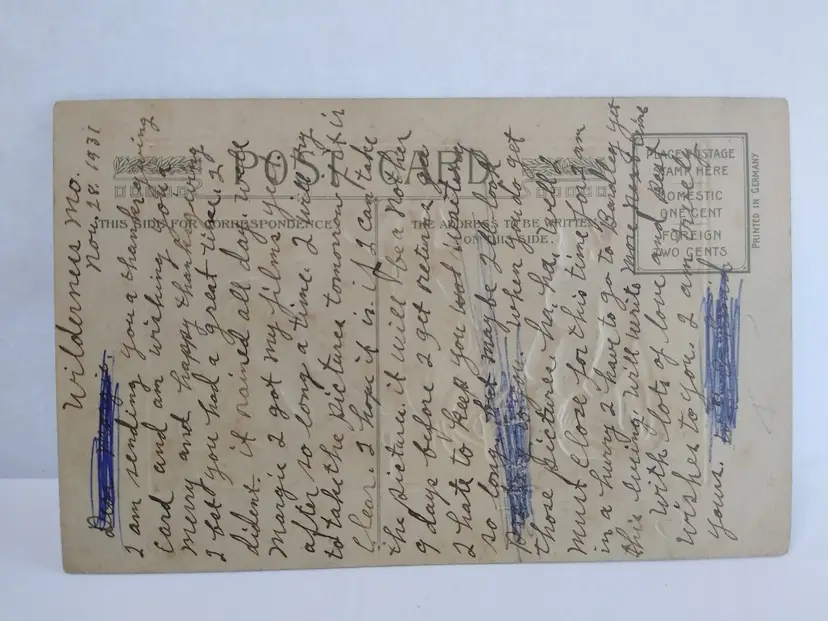 Wilderness Mo.
Nov. 28. 1931
I am sending you a thanksgiving
card and am wishing you a
merry and happy thanksgiving
I bet you had a great time. I
dident. it rained all day. well
Margie I got my films yes.
after so long a time. I will try
to take the pictures tomorrow if it is
clear. I hope it is if I can take
the picture. it will be a nother
9 days before I get returns
I hate to keep you waiting
so long but maybe I look
when you do get
those pictures ha ha. Well
must close for this time for am
in a hurry I have to go to Bardley yet
this evening. Will write more next time
With lots of love and Best
Wishes to you I am Lovely
yours.
POST CARD
THIS SIDE FOR CORRESPONDENCE
THE ADDRESS TO BE WRITTEN
ON THIS SIDE.
PLACE POSTAGE
STAMP HERE
DOMESTIC
ONE CENT
FOREIGN
TWO CENTS
PRINTED IN GERMANY